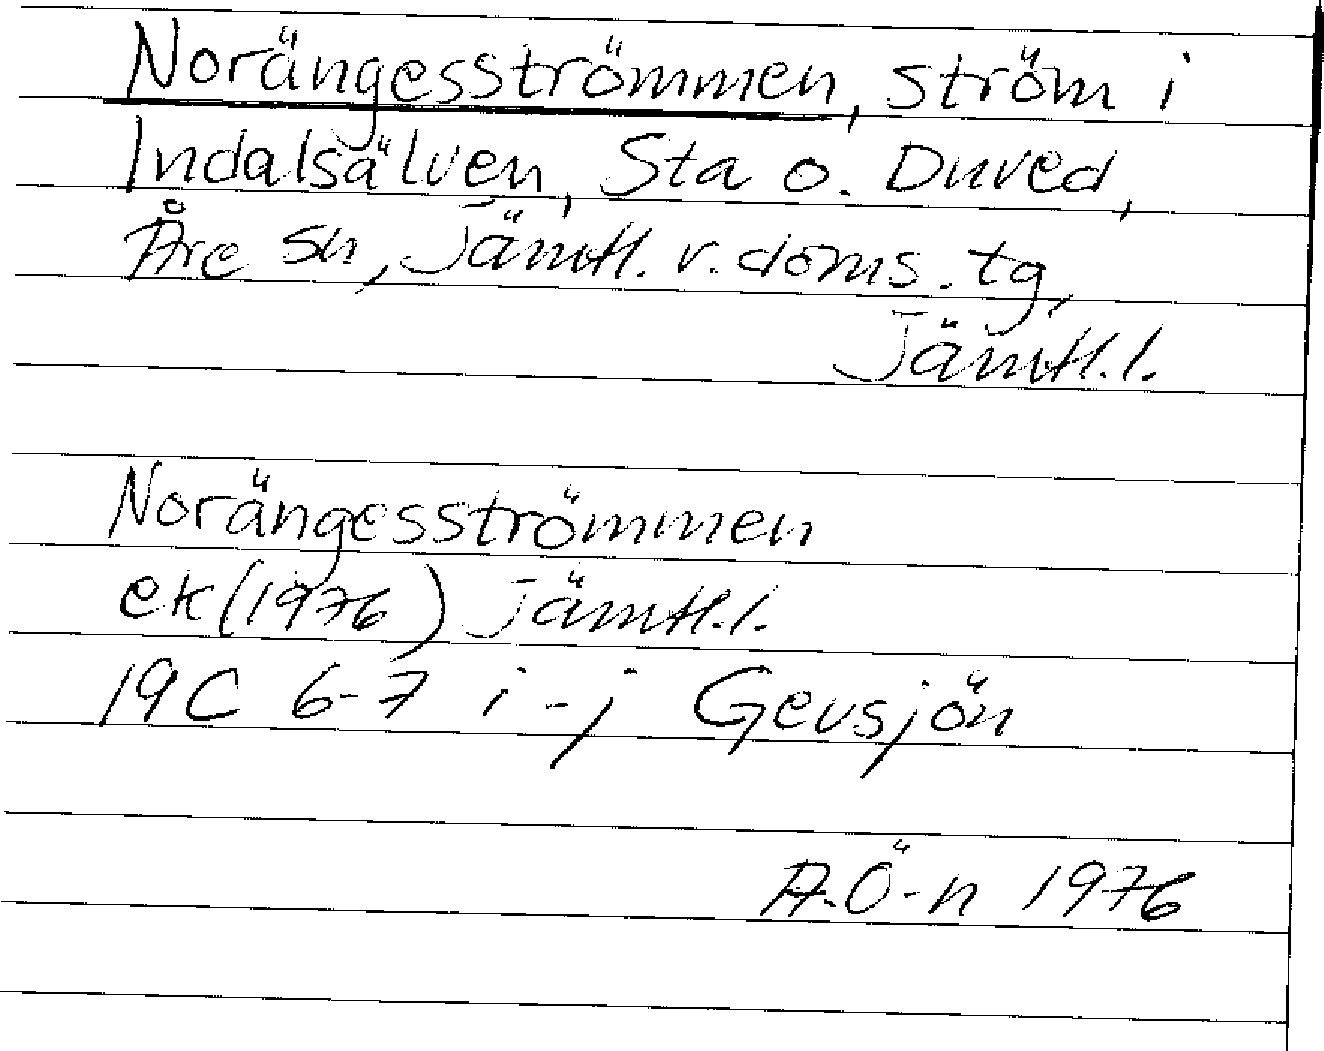 Norängesströmmen, ström i
Indalsälven, Sta o. Duved,
Åre sn, Jämtl. v. doms. tg,
Jämtl. l.
Norängesströmmen
ek (1976) Jämtl. l.
19C 6-7 i-j Gevsjön
A.Ö-n 1976